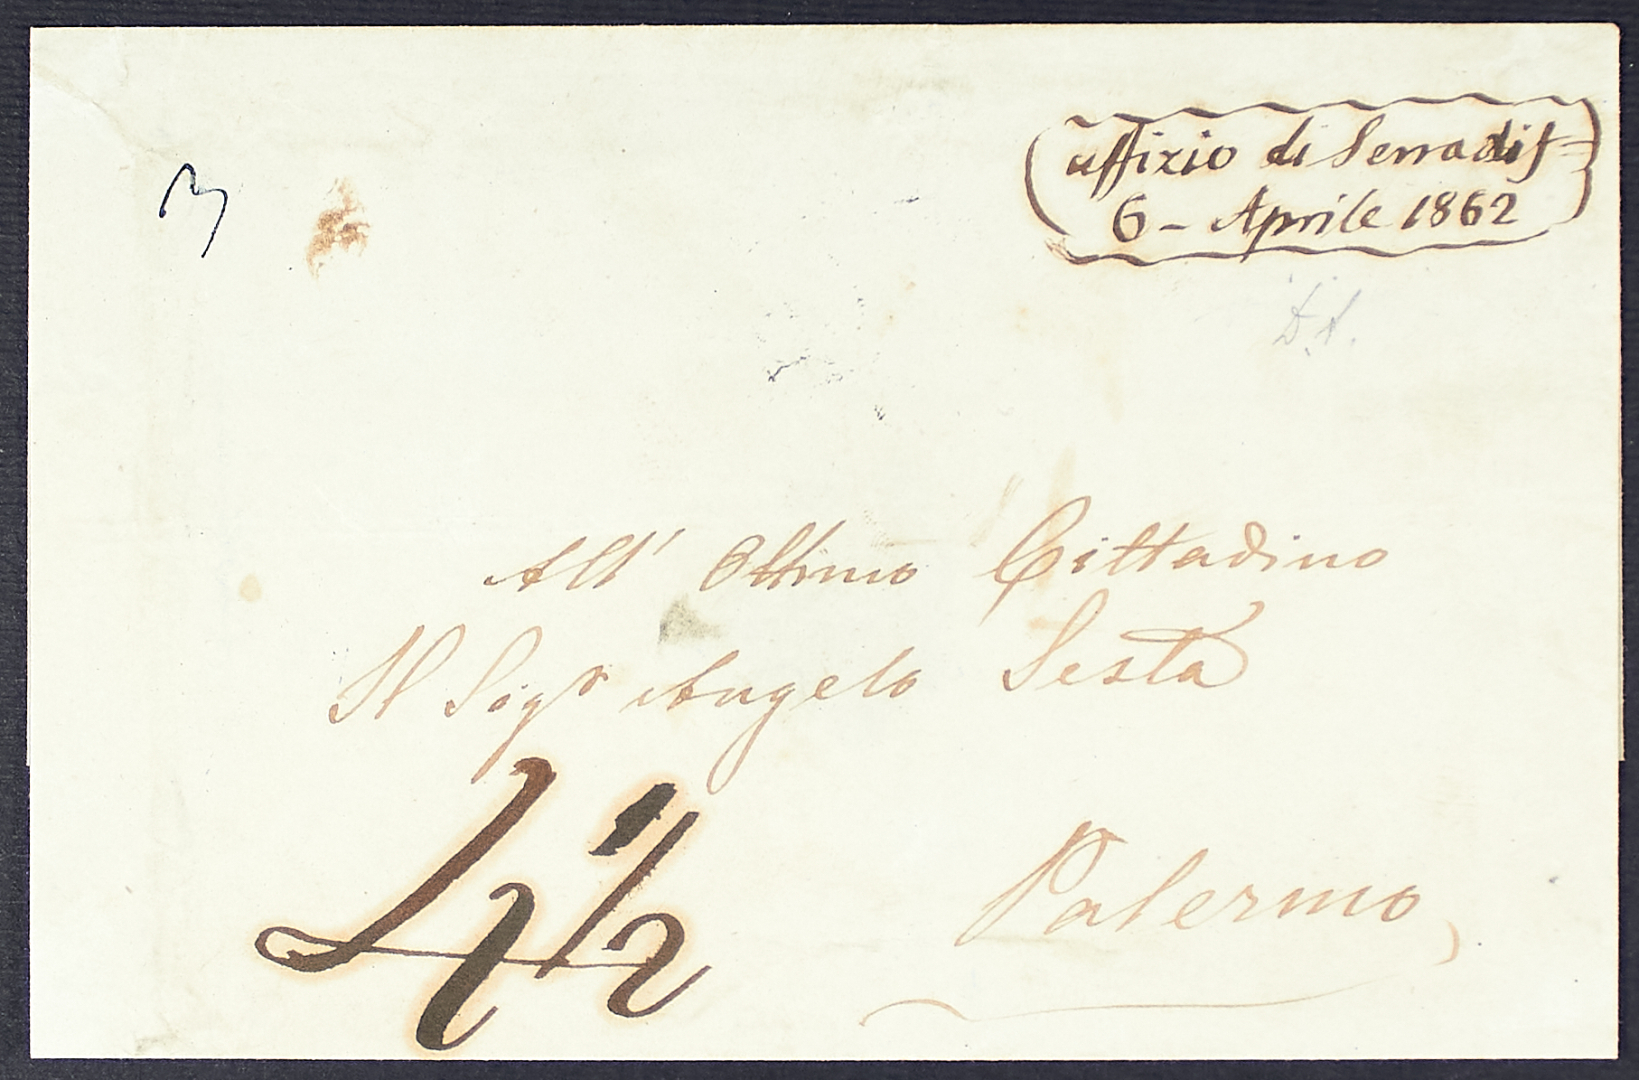 uffizio di Serradif=
6 - Aprile 1862
3
D. A.
All' Ottimo Cittadino
Il Sigr Angelo Sesta
4 1/2
Palermo,